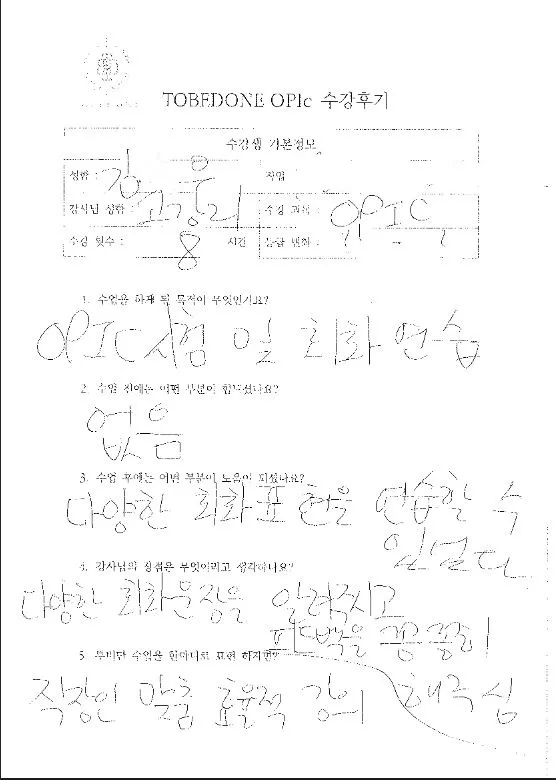 TOBEDONE OPIc 수강후기
수강생 기본정보
성함 : 김 웅 직업
강사님 성함 : 고강희 수강 과목 : OPIC
수강 횟수 : 8 시간 등급 변화 :
1. 수업을 하게 된 목적이 무엇인가요?
OPIC 시험 및 회화 연습
2. 수업 전에는 어떤 부분이 힘드셨나요?
없음
3. 수업 후에는 어떤 부분이 도움이 되셨나요?
다양한 회화 표현을 연습할 수
있었다
4. 강사님의 장점은 무엇이라고 생각하나요?
다양한 회화문장을 알려주시고
피드백을 꼼꼼히
5. 투비단 수업을 한마디로 표현 하자면?
해주심
직장인 맞춤 효율적 강의